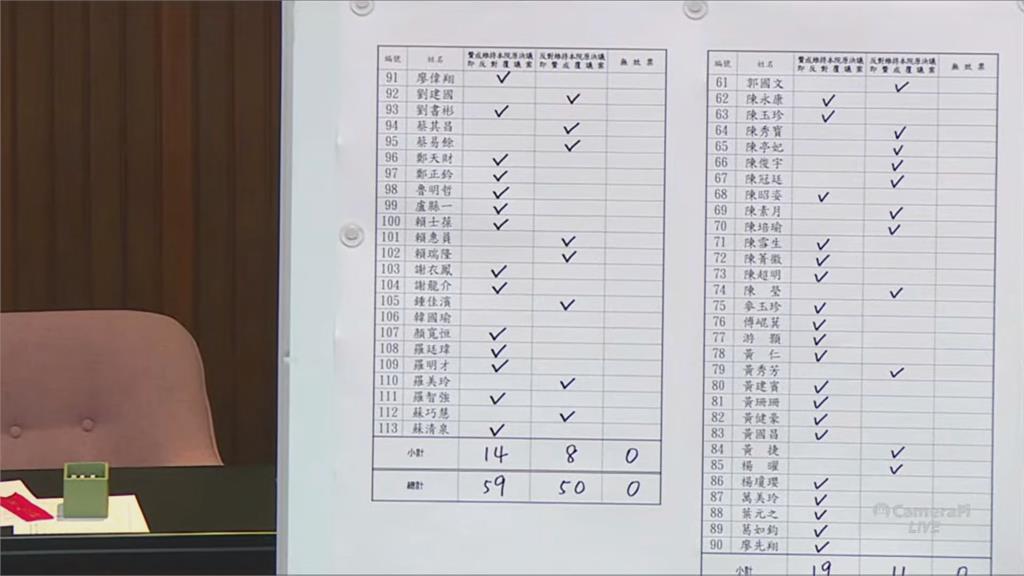 編號 姓名 贊成維持本院原決議即反對覆議案 反對維持本院原決議即贊成覆議案 無效票
91 廖偉翔 ✓
92 劉建國 ✓
93 劉書彬 ✓
94 蔡其昌 ✓
95 蔡易餘 ✓
96 鄭天財 ✓
97 鄭正鈐 ✓
98 魯明哲 ✓
99 盧縣一 ✓
100 賴士葆 ✓
101 賴惠員 ✓
102 賴瑞隆 ✓
103 謝衣鳳 ✓
104 謝龍介 ✓
105 鍾佳濱 ✓
106 韓國瑜
107 顏寬恒 ✓
108 羅廷瑋 ✓
109 羅明才 ✓
110 羅美玲 ✓
111 羅智強 ✓
112 蘇巧慧 ✓
113 蘇清泉 ✓
小計 14 8 0
總計 59 50 0
編號 姓名 贊成維持本院原決議即反對覆議案 反對維持本院原決議即贊成覆議案 無效票
61 郭國文 ✓
62 陳永康 ✓
63 陳玉珍 ✓
64 陳秀寳 ✓
65 陳亭妃 ✓
66 陳俊宇 ✓
67 陳冠廷 ✓
68 陳昭姿 ✓
69 陳素月 ✓
70 陳培瑜 ✓
71 陳雪生 ✓
72 陳菁徽 ✓
73 陳超明 ✓
74 陳瑩 ✓
75 麥玉珍 ✓
76 傅崐萁 ✓
77 游顥 ✓
78 黃仁 ✓
79 黃秀芳 ✓
80 黃建賓 ✓
81 黃珊珊 ✓
82 黃健豪 ✓
83 黃國昌 ✓
84 黃捷 ✓
85 楊曜 ✓
86 楊瓊瓔 ✓
87 萬美玲 ✓
88 葉元之 ✓
89 葛如鈞 ✓
90 廖先翔 ✓
小計 19 11 0
CameraFi
LIVE